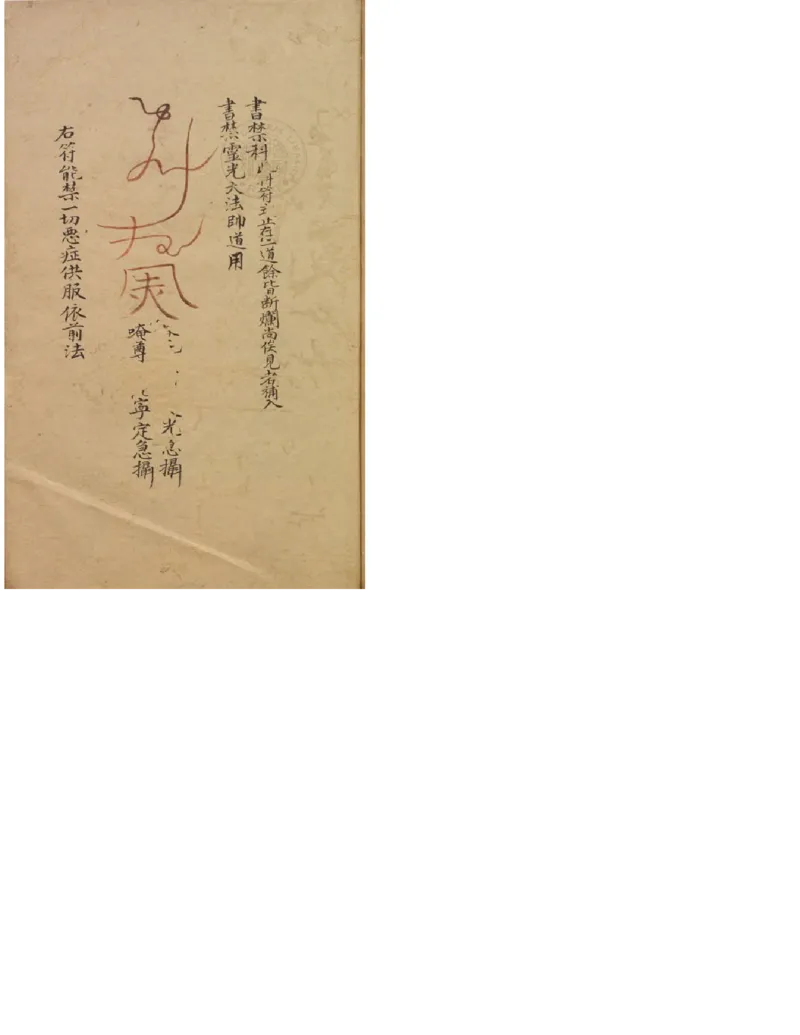 書禁科此科符式止存一道餘皆斷爛尚俟見者補入
書禁靈光大法師道用
光急攝
唵尊
寧定急攝
右符能禁一切惡症供服依前法